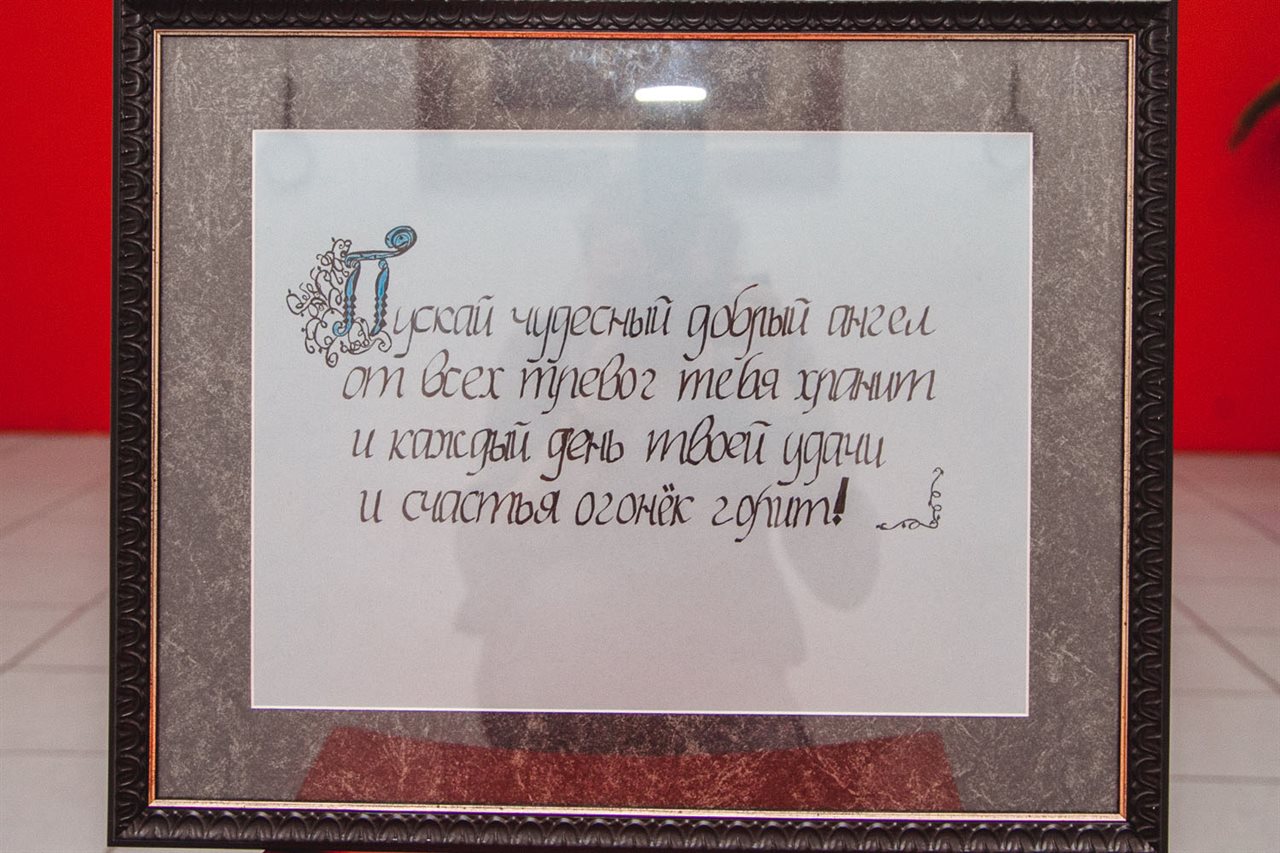 Пускай чудесный добрый ангел
от всех тревог тебя хранит
и каждый день твоей удачи
и счастья огонёк горит!